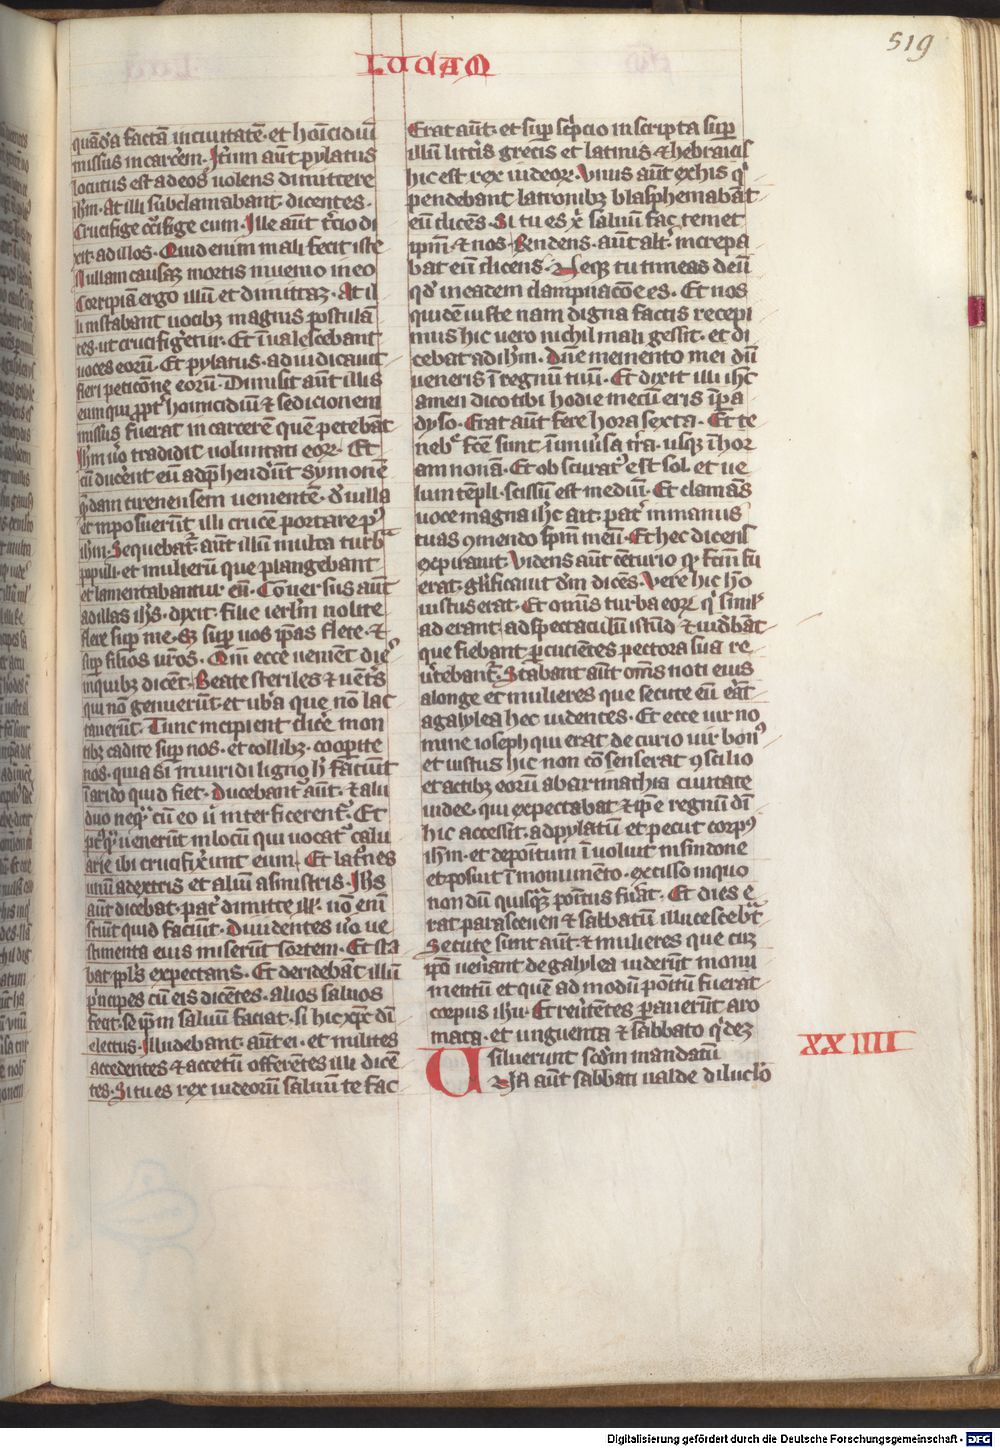 519
LUCAM
quādā factā in ciuitatē · et homicidiū
missus in carcerem · Iterum aūt pylatus
locutus est ad eos uolens dimittere
ihm · At illi subclamabant · dicentes ·
Crucifige crucifige eum · Ille aūt tercio di
xit · ad illos · Quid enim mali fecit iste
Nullam causam mortis inuenio in eo
Corripiā ergo illū et dimittaꝫ · At il
li instabant uocibꝫ magnis postulā
tes · ut crucifigeretur · Et īualescebant
uoces eorū · Et pylatus · adiudicauit
fieri peticionē eorū · Dimisit aūt illis
eum qui propter homicidiū ⁊ sedicionem
missus fuerat in carcerē quē petebāt
Ihm uero tradidit uoluntati eoꝝ · Et
cū ducerent eū adprehenderūt symonē
quēdam cirenensem uenientē · de uilla
et inposuerūt illi crucē portare post
ihm · Sequebatur aūt illum multa turba
populi · et mulierū que plangebant
et lamentabantur eū · Conuersus aūt
ad illas ihs · dixit · filie ierlm nolite
flere super me · sꝫ super uos ip̄as flete · ⁊
super filios uros · Qm̄ ecce uenient dies
in quibꝫ dicent · Beate steriles ⁊ uentres
qui nō genuerūt · et ubera que nō lac
tauerūt · Tunc incipient dicere mon
tibꝫ cadite super nos · et collibꝫ · cooperite
nos · quia si in uiridi ligno hec faciūt
ī arido quid fiet · Ducebantur aūt · ⁊ alii
duo nequā cū eo ut interficerent · Et
postquam uenerūt in locū qui uocatur calu
arie ibi crucifixerunt eum · Et latrones
unū a dextris et aliū a sinistris · Ihs
aūt dicebat · pater dimitte illis · nō enī
sciūt quid faciūt · Diuidentes uero ue
stimenta eius miserūt sortem · Et sta
bat populus expectans · Et deridebāt illū
principes cū eis dicētes · alios saluos
fecit · se ipm saluū faciat · si hic xpc dī
electus · Illudebant aūt ei · et milites
accedentes ⁊ acetū offerētes illi dicē
tes · Si tu es rex iudeorū saluū te fac
Erat aūt · et super scripcio inscripta super
illū litteris grecis et latinis ⁊ hebraicis
hic est rex iudeoꝝ · Unus aūt ex his qui
pendebant latronibꝫ blasphemabāt
eū dicēs · Si tu es xp̄c saluū fac temet
ipm · ⁊ nos · Respondens · aūt alter increpa
bat eū dicens · Neqꝫ tu times deū
qd in eadem dampnacōe es · Et nos
quidē iuste nam digna factis recepi
mus hic uero nichil mali gessit · et di
cebat ad ihm · Dn̄e memento mei dū
ueneris ī regnū tuū · Et dixit illi ihc
amen dico tibi hodie mecū eris ī para
dyso · Erat aūt fere hora sexta · Et te
nebre facte sunt ī uniuersa terra · usqꝫ ī hor
am nonā · Et obscuratus est sol · et ue
lum templi · scissū est mediū · Et clamās
uoce magna ihc ait · pater in manus
tuas ꝯmendo spm meū · Et hec dicens
expirauit · Uidens aūt centurio qd factū fu
erat · glificauit dm dicēs · Vere hic homo
iustus erat · Et omnis turba eoꝝ qui simul
ad erant · ad spectaculū istud ⁊ uidebāt
que fiebant percucientes pectora sua re
uertebantur · Stabant aūt oms noti eius
a longe et mulieres que secute eū erāt
a galylea hec uidentes · Et ecce uir no
mine ioseph qui erat decurio uir bonus
et iustus hic non cōsenserat ꝯsilio
et actibꝫ eorū ab arimathia ciuitate
iudee · qui expectabat ⁊ ipse regnū dī
hic accessit · ad pylatū et peciit corpus
ihm · et depositum ī uoluit in sindone
et posuit ī monumēto · exciso in quo
nondū quisquam positus fuerat · Et dies e
rat parasceuen ⁊ sabbatū illucescebat
Secute sunt aūt · ⁊ mulieres que cuꝫ
ipso uenerant de galylea uiderūt monu
mentū et quē ad modū positū fuerat
corpus ihu · Et reuertētes parauerūt aro
mata · et unguenta ⁊ sabbato quideꝫ
siluerunt scdm mandatū
XXIIII
UNA aūt sabbati ualde diluculo
Digitalisierung gefördert durch die Deutsche Forschungsgemeinschaft - DFG